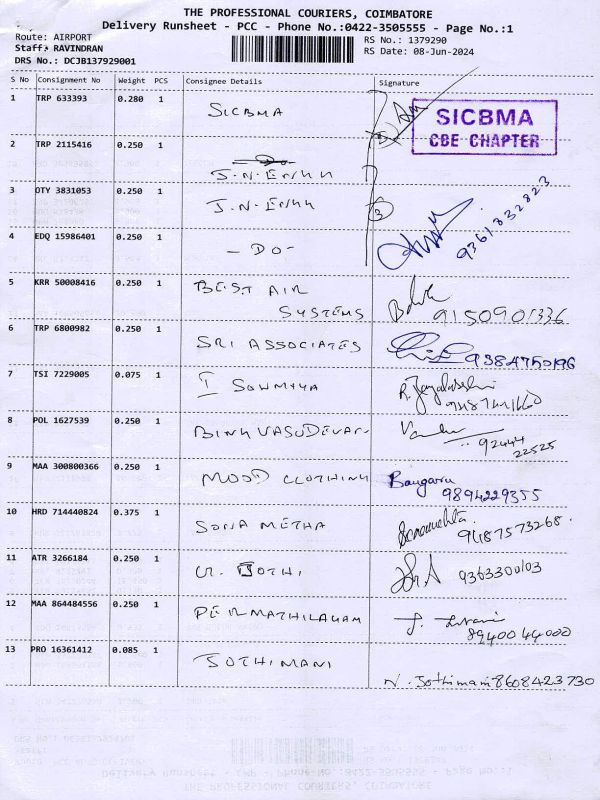 THE PROFESSIONAL COURIERS, COIMBATORE
Delivery Runsheet - PCC - Phone No.:0422-3505555 - Page No.:1
Route: AIRPORT
RS No.: 1379290
Staff: RAVINDRAN
RS Date: 08-Jun-2024
DRS No.: DCJB137929001
S No Consignment No Weight PCS Consignee Details Signature
1 TRP 633393 0.280 1 SICBMA
SICBMA
CBE CHAPTER
2 TRP 2115416 0.250 1
3 OTY 3831053 0.250 1 3
4 EDQ 15986401 0.250 1 - DO - 9361832823
5 KRR 50008416 0.250 1 BEST AIR
SYSTEMS 9150901336
6 TRP 6800982 0.250 1 SRI ASSOCIATES 9384750196
7 TSI 7229005 0.075 1 I SOWMYA
8 POL 1627539 0.250 1 BINU VASUDEVAN 92444
22525
9 MAA 300800366 0.250 1 MOOD CLOTHING Bangaru
9894229355
10 HRD 714440824 0.375 1 SONA METHA Sonamehta
9487573268.
11 ATR 3266184 0.250 1 JOTHI 9363300103
12 MAA 864484556 0.250 1
8940044000
13 PRO 16361412 0.085 1 JOTHIMANI
N. Jothimani 8608423730